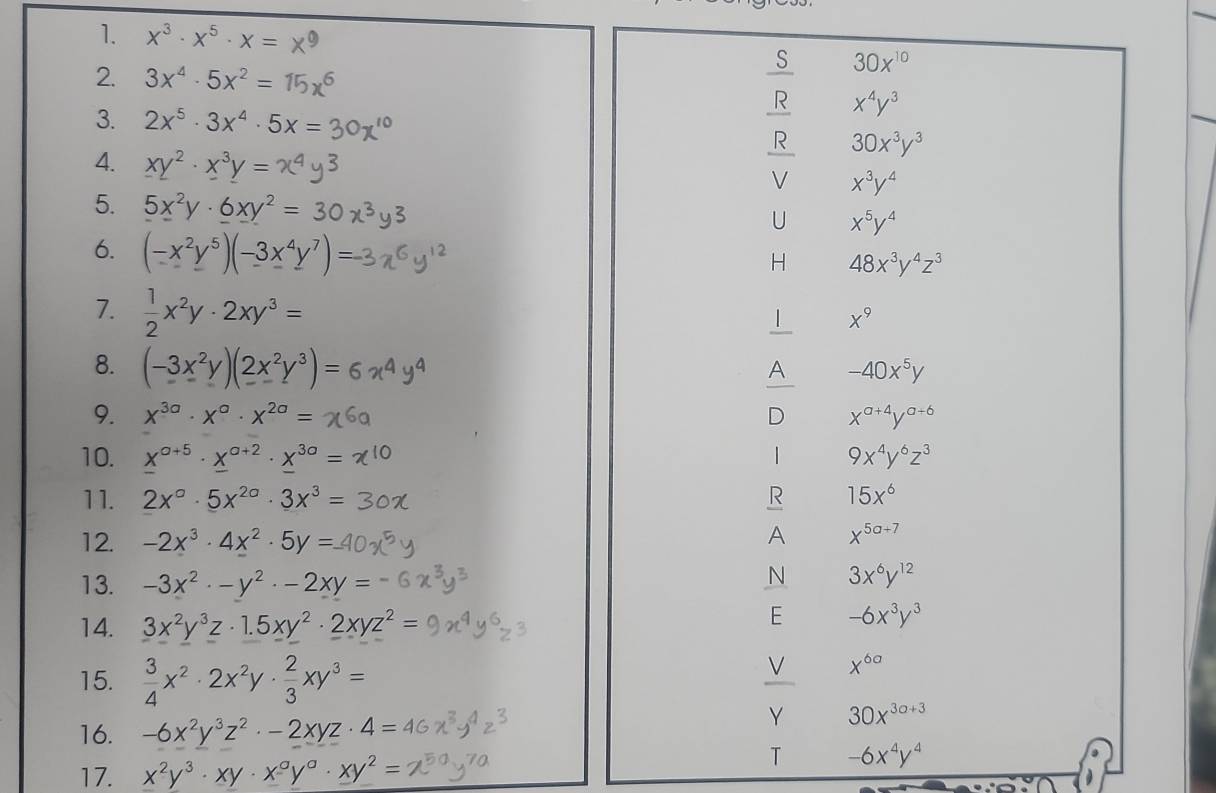 1. x³ · x⁵ · x = x⁹
2. 3x⁴ · 5x² = 15x⁶
3. 2x⁵ · 3x⁴ · 5x = 30x¹⁰
4. xy² · x³y = x⁴y³
5. 5x²y · 6xy² = 30x³y3
6. (-x²y⁵)(-3x⁴y⁷) = -3x⁶y¹²
7. 1/2 x²y · 2xy³ =
8. (-3x²y)(2x²y³) = 6x⁴y⁴
9. x³ᵃ · xᵃ · x²ᵃ = x⁶a
10. xᵃ⁺⁵ · xᵃ⁺² · x³ᵃ = x¹⁰
11. 2xᵃ · 5x²ᵃ · 3x³ = 30x
12. -2x³ · 4x² · 5y = -40x⁵y
13. -3x² · -y² · -2xy = -6x³y³
14. 3x²y³z · 1.5xy² · 2xyz² = 9x⁴y⁶z3
15. 3/4 x² · 2x²y · 2/3 xy³ =
16. -6x²y³z² · -2xyz · 4 = 46x³y⁴z³
17. x²y³ · xy · xᵃyᵃ · xy² = x⁵ᵃy⁷ᵃ
S 30x¹⁰
R x⁴y³
R 30x³y³
V x³y⁴
U x⁵y⁴
H 48x³y⁴z³
I x⁹
A -40x⁵y
D xᵃ⁺⁴yᵃ⁺⁶
I 9x⁴y⁶z³
R 15x⁶
A x⁵ᵃ⁺⁷
N 3x⁶y¹²
E -6x³y³
V x⁶ᵃ
Y 30x³ᵃ⁺³
T -6x⁴y⁴